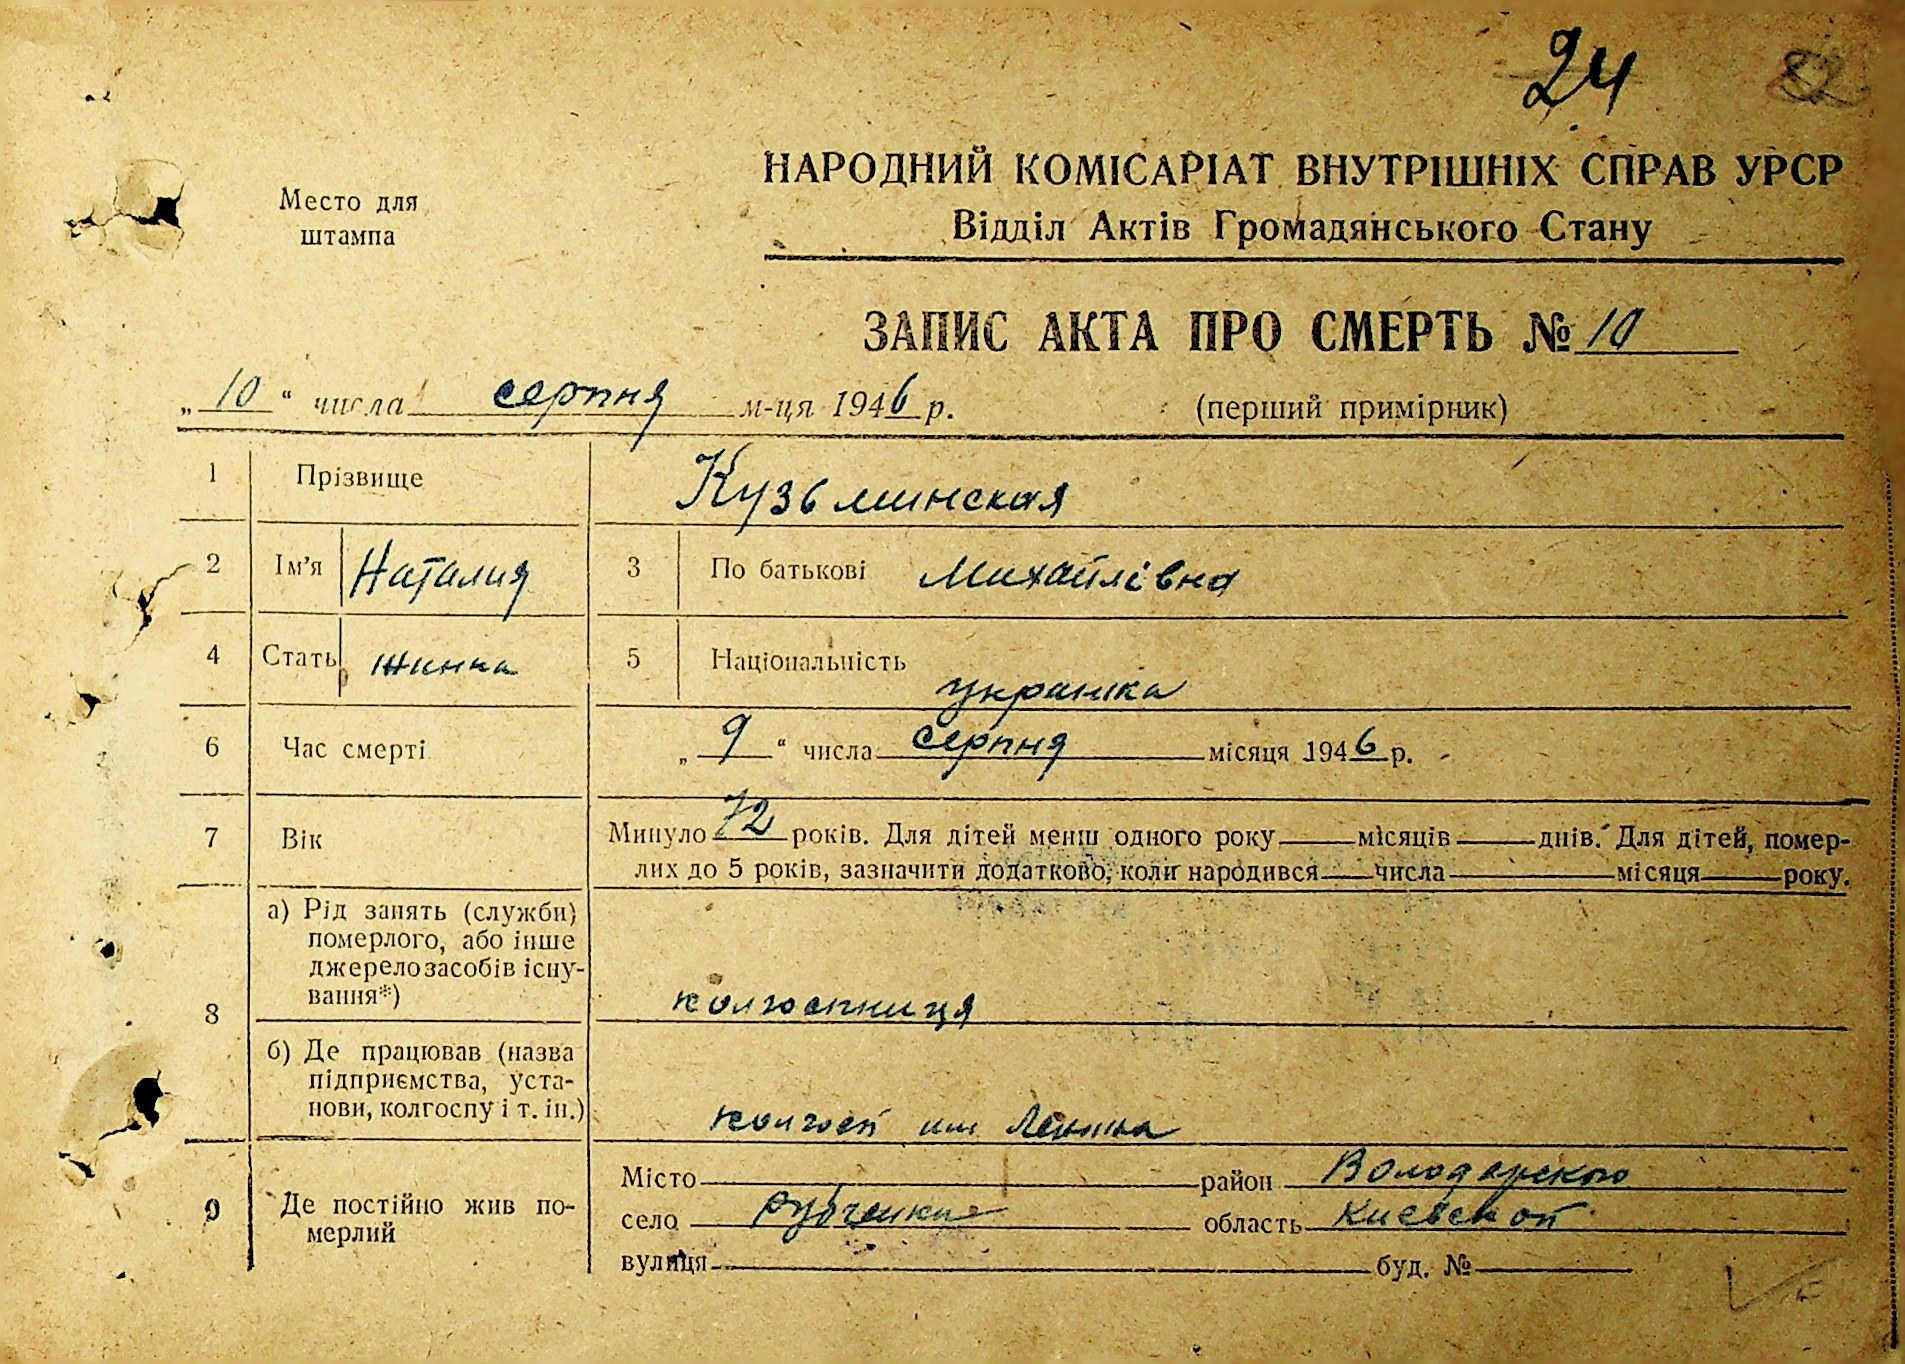 24
82
Место для
штампа
НАРОДНИЙ КОМІСАРІАТ ВНУТРІШНІХ СПРАВ УРСР
Відділ Актів Громадянського Стану
ЗАПИС АКТА ПРО СМЕРТЬ № 10
„10“ числа серпня м-ця 1946 р. (перший примірник)
1 Прізвище Кузьминская
2 Ім'я Наталия 3 По батькові Михайлівна
4 Стать жинка 5 Національність українка
6 Час смерті „9“ числа серпня місяця 1946 р.
7 Вік Минуло 72 років. Для дітей менш одного року місяців днів. Для дітей, помер-
лих до 5 років, зазначити додатково, коли народився числа місяця року.
8 а) Рід занять (служби)
померлого, або інше
джерело засобів існу-
вання*)
колгоспниця
б) Де працював (назва
підприємства, уста-
нови, колгоспу і т. ін.)
колгосп им Леніна
9 Де постійно жив по-
мерлий
Місто район Володарского
село Рубченки область Киевской
вулиця буд. №